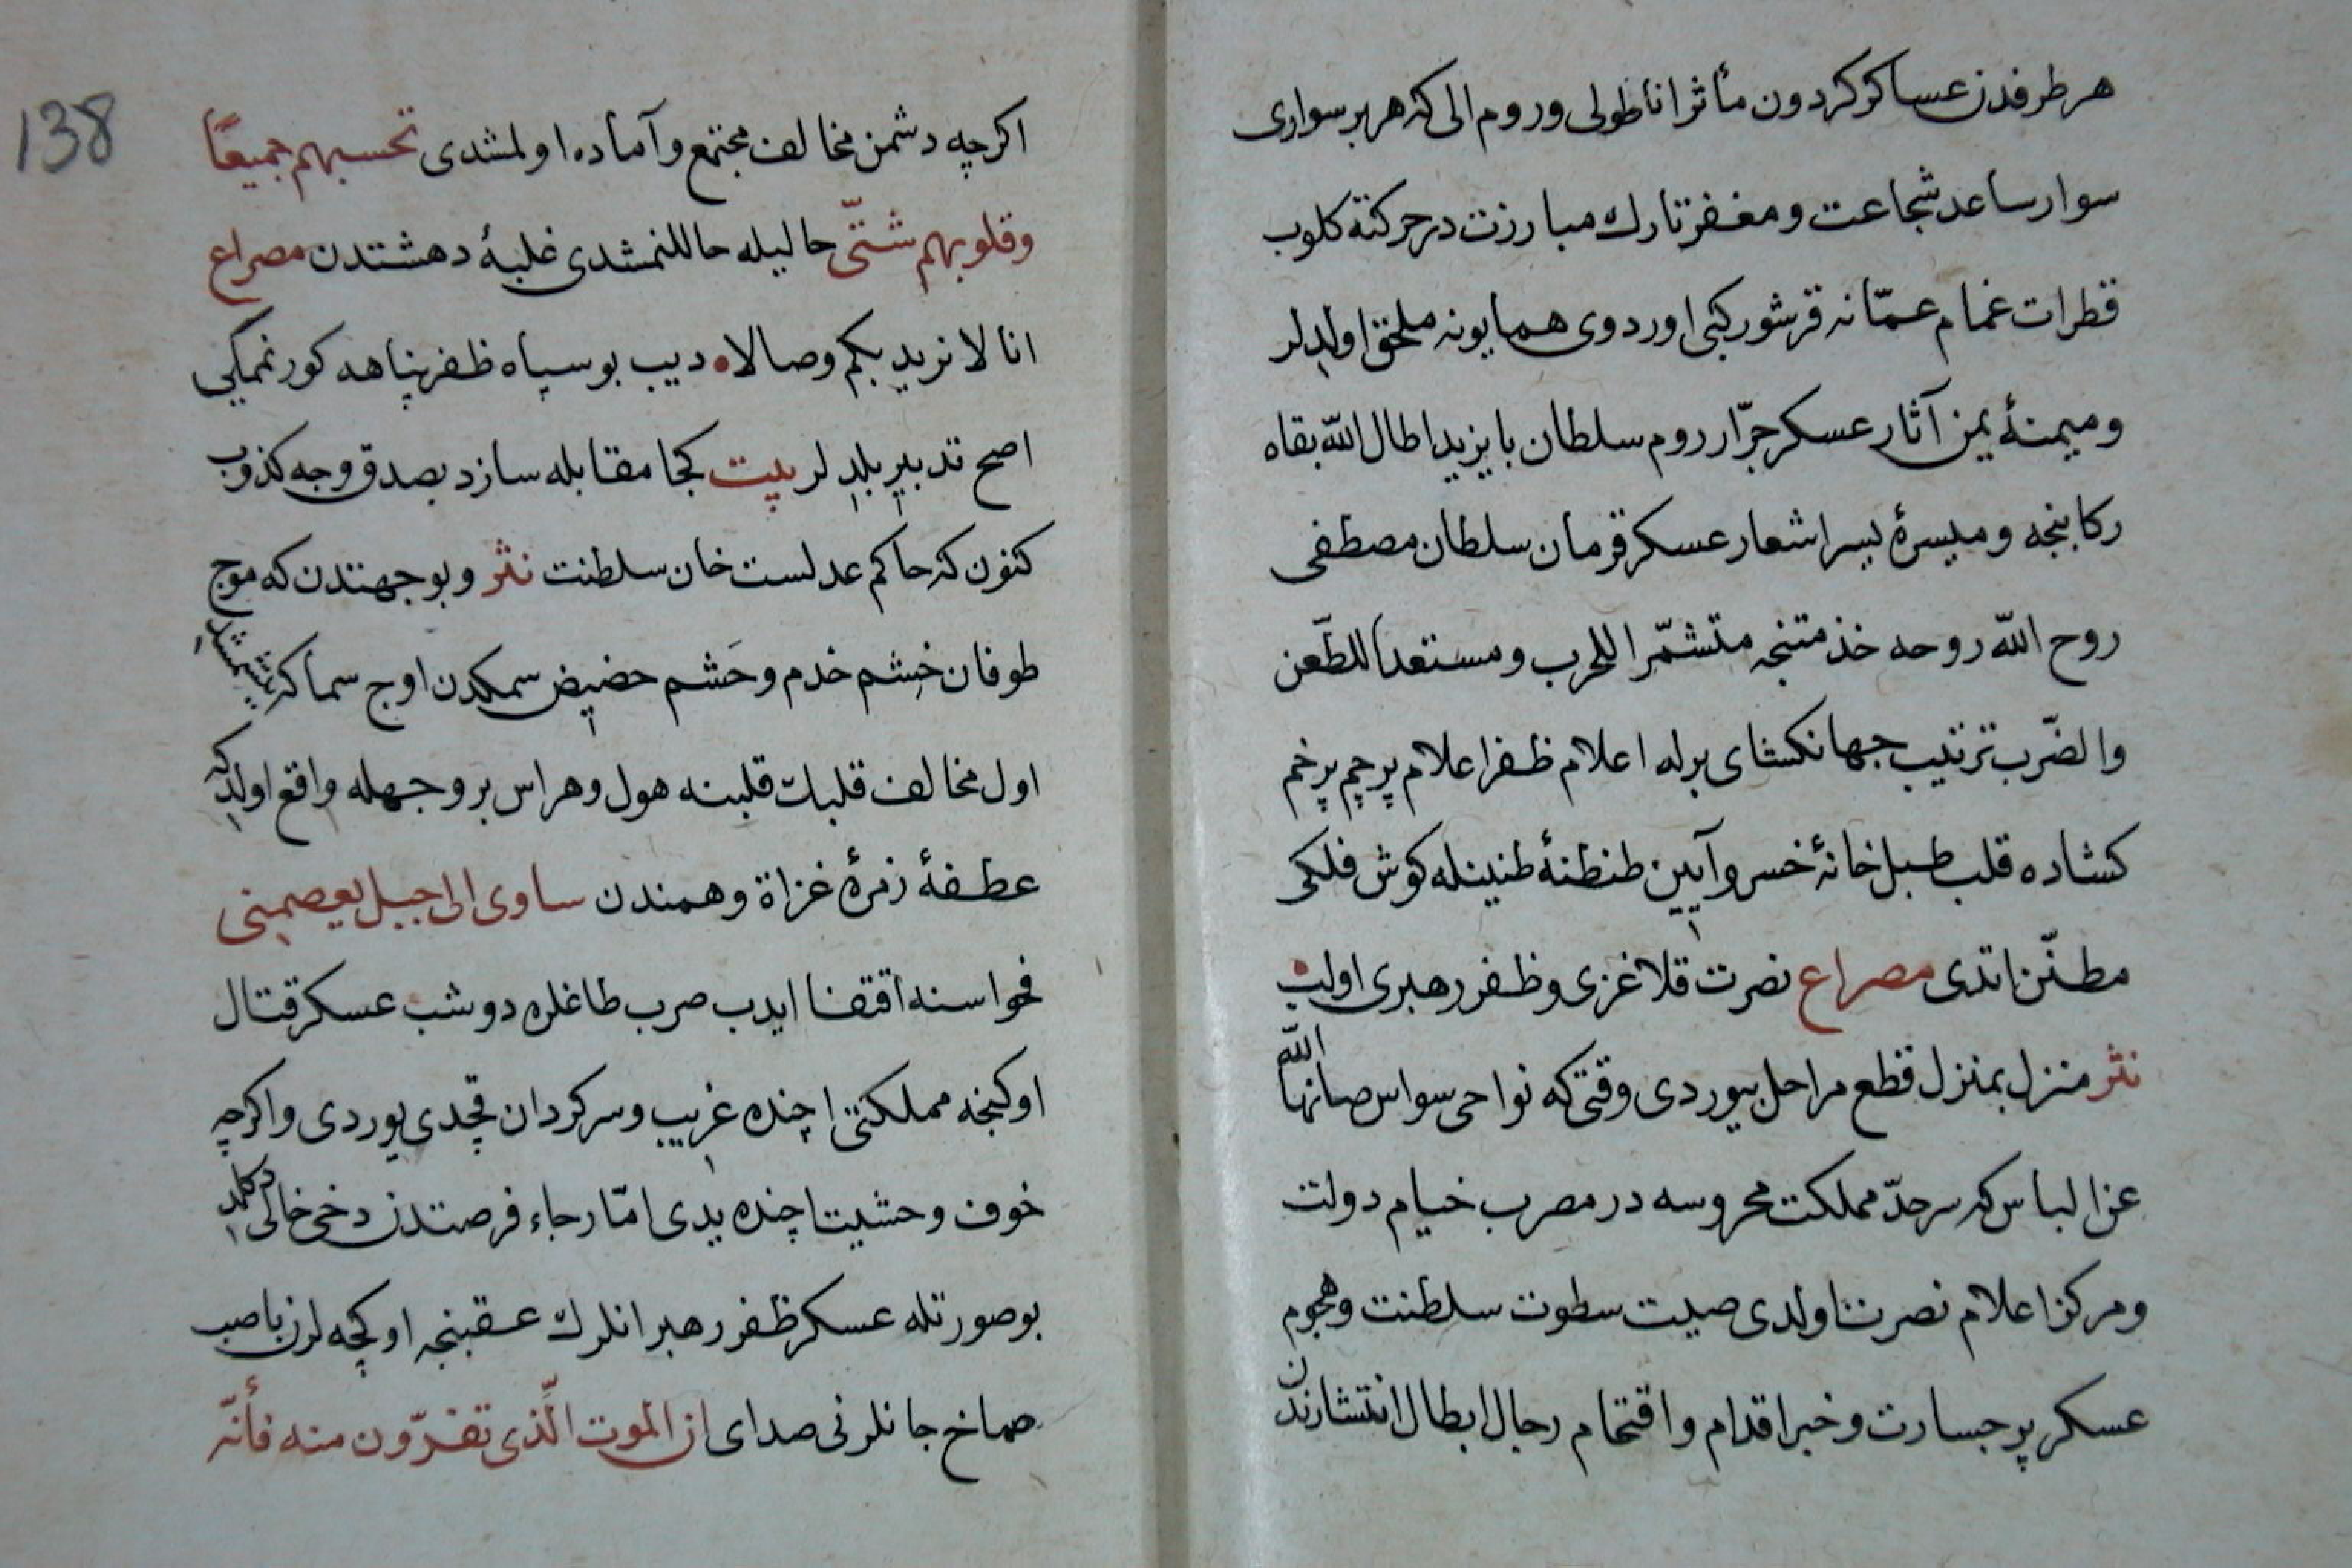 هر طرفدن عساكر كردون مأثر اناطولی وروم الی كه هر بر سواری
سوار ساعد شجاعت ومغفر تارك مبارزت در حركته كلوب
قطرات غمام عمّانه قرشور كبی اوردوی همایونه ملحق اولدلر
ومیمنهٔ یمن آثار عسكر جرّار روم سلطان بایزید اطال اللّه بقاه
ركابنجه ومیسرهٔ یسر اشعار عسكر قرمان سلطان مصطفی
روح اللّه روحه خذمتنجه متشمّرا للحرب ومستعدا للطّعن
والضّرب ترتیب جهانكشای برله اعلام ظفر اعلام پرچم پرخم
كشاده قلب طبل خانهٔ خسرو آیین طنطنهٔ طنینله كوش فلكی
مطنّن اتدی مصراع نصرت قلاغزی وظفر رهبری اولب
نثر منزل بمنزل قطع مراحل بیوردی وقتی كه نواحی سواس صانها اللّه
عن الباس كه سرحدّ مملكت محروسه در مضرب خیام دولت
ومركز اعلام نصرت اولدی صیت سطوت سلطنت وهجوم
عسكر پر جسارت وخبر اقدام واقتحام رجال ابطال انتشارندن
138
اكرچه دشمن مخالف مجتمع وآماده اولمشدی تحسبهم جمیعًا
وقلوبهم شتّی حالیله حاللنمشدی غلبهٔ دهشتدن مصراع
انا لا نرید بكم وصالا دیب بو سپاه ظفر پناهه كورنمكی
اصح تدبیر بلدلر بیت كجا مقابله سازد بصدق وجه كذوب
كنون كه حاكم عدلست خان سلطنت نثر وبو جهتدن كه موج
طوفان خشم خدم وحَشم حضیض سمكدن اوج سماكه یتشمشدی
اول مخالف قلبك قلبنه هول وهراس بر وجهله واقع اولدی كه
عطفهٔ زمرهٔ غزاة وهمندن ساوی الی جبل یعصمنی
فحواسنه اقتفا ایدب صرب طاغلره دوشب عسكر قتال
اوكنجه مملكتی اچنده غریب وسركردان قچدی یوردی واكرچه
خوف وحشیت اچنده یدی امّا رجاء فرصتدن دخی خالی دكلدی
بو صورتله عسكر ظفر رهبر انلرك عقبنجه اوكچه لرن باصب
صماخ جانلرنی صدای ان الموت الّذی تفرّون منه فأنّه